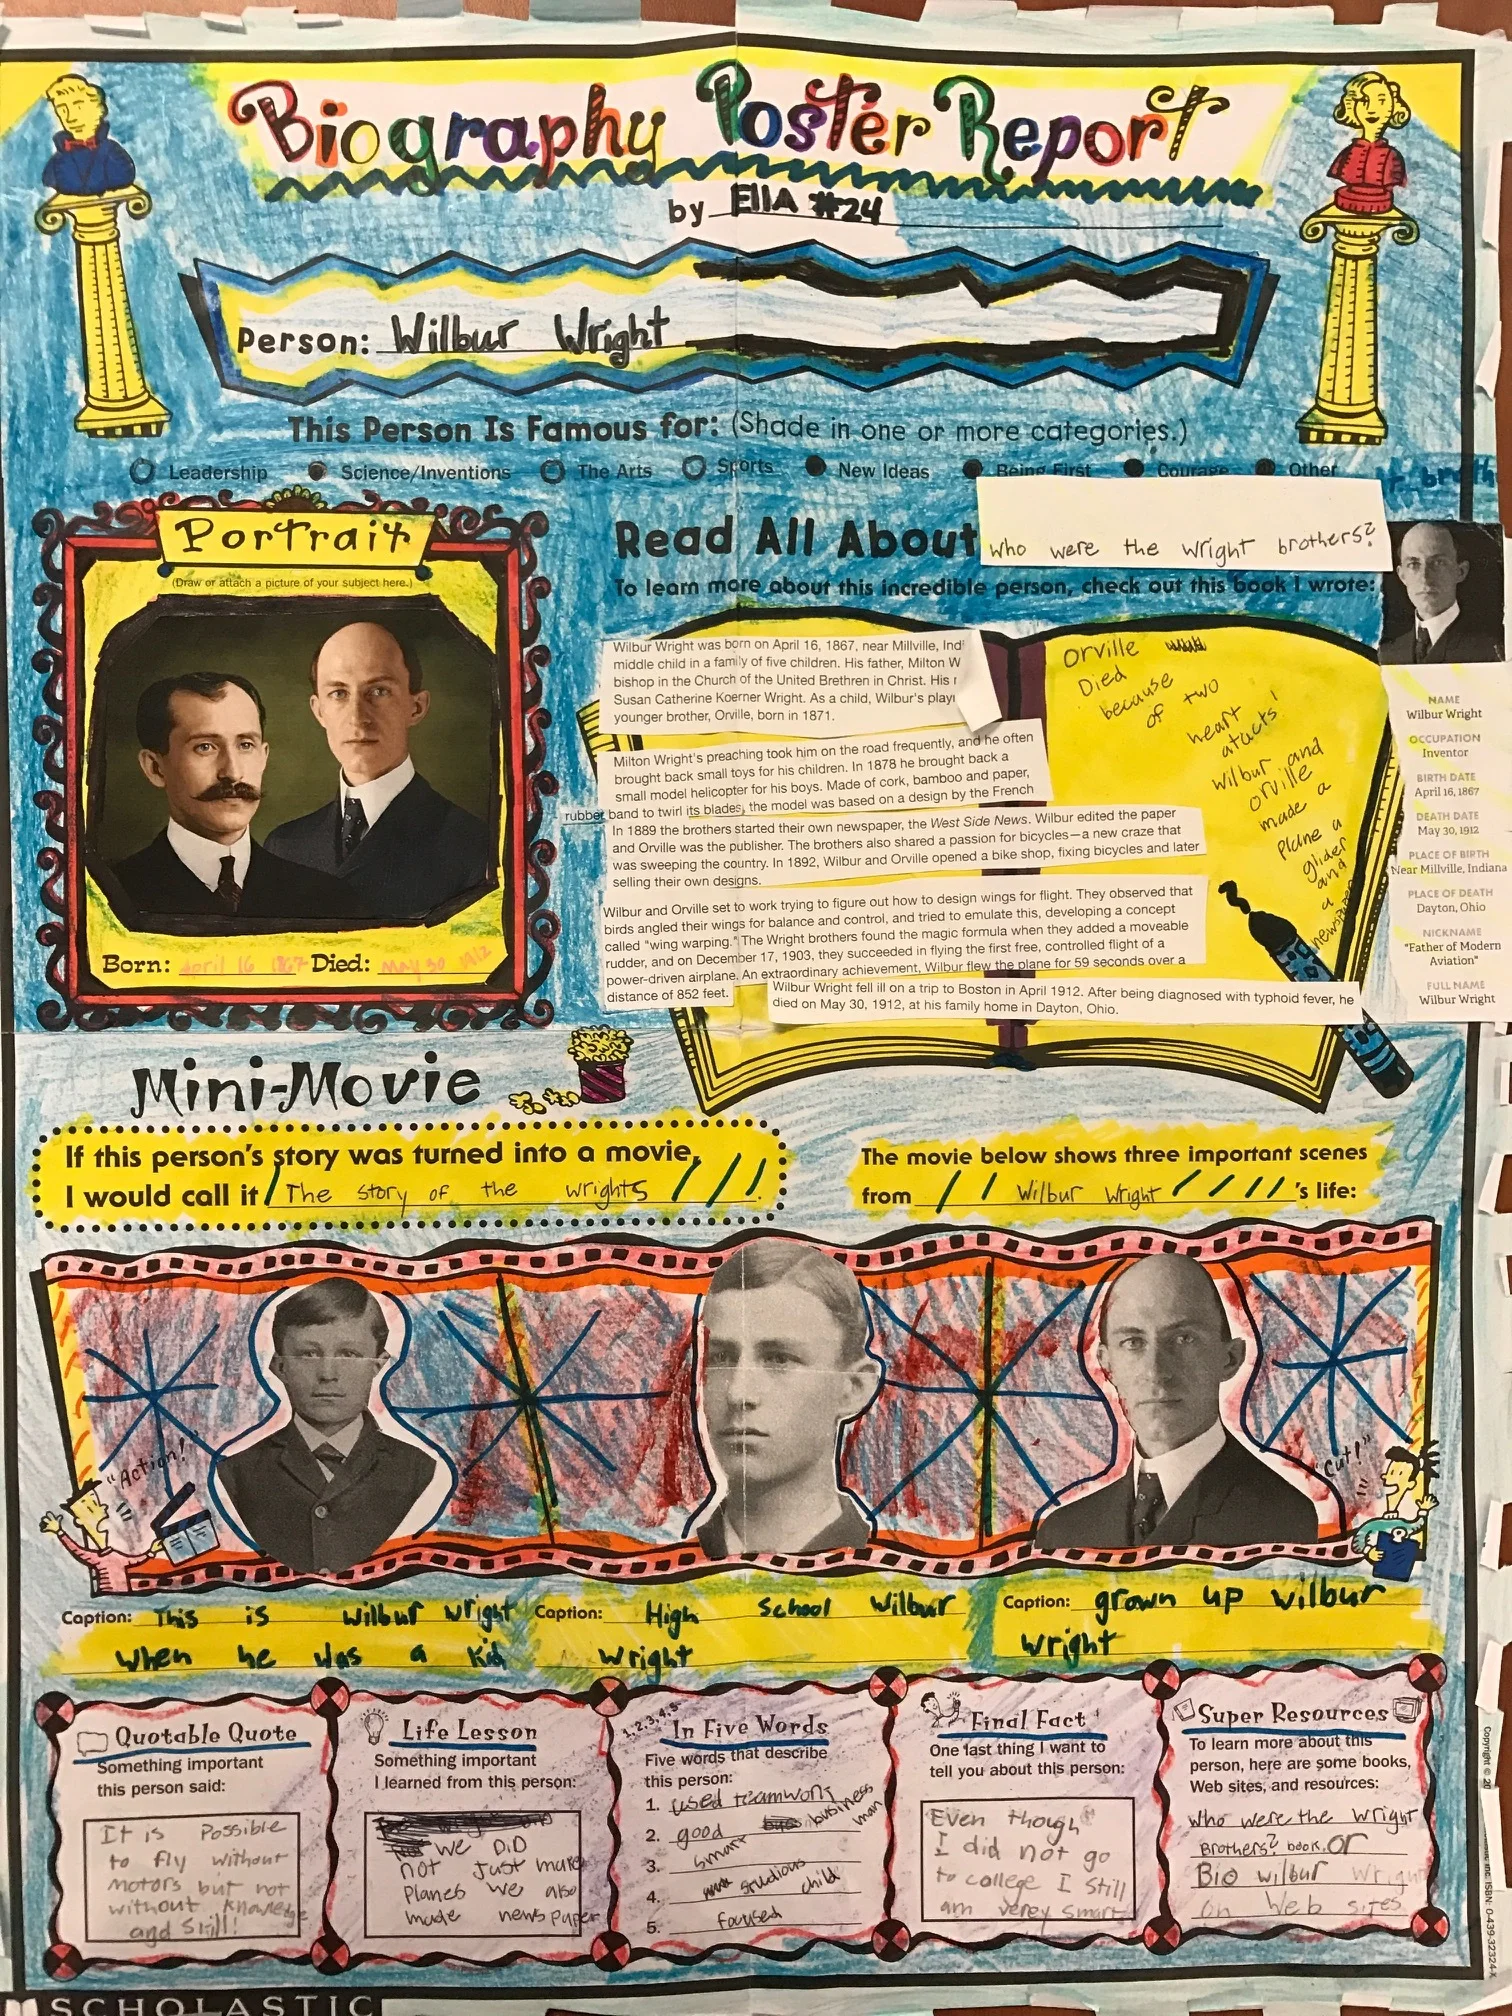 Biography Poster Report
by EllA #24
Person: Wilbur Wright
This Person Is Famous for: (Shade in one or more categories.)
Leadership Science/Inventions The Arts Sports New Ideas Being First Courage Other
Portrait
(Draw or attach a picture of your subject here.)
Born: April 16 1867 Died: May 30 1912
Read All About who were the wright brothers?
To learn more about this incredible person, check out this book I wrote:
Wilbur Wright was born on April 16, 1867, near Millville, Ind
middle child in a family of five children. His father, Milton W
bishop in the Church of the United Brethren in Christ. His
Susan Catherine Koerner Wright. As a child, Wilbur's play
younger brother, Orville, born in 1871.
Milton Wright's preaching took him on the road frequently, and he often
brought back small toys for his children. In 1878 he brought back a
small model helicopter for his boys. Made of cork, bamboo and paper,
rubber band to twirl its blades, the model was based on a design by the French
In 1889 the brothers started their own newspaper, the West Side News. Wilbur edited the paper
and Orville was the publisher. The brothers also shared a passion for bicycles—a new craze that
was sweeping the country. In 1892, Wilbur and Orville opened a bike shop, fixing bicycles and later
selling their own designs.
Wilbur and Orville set to work trying to figure out how to design wings for flight. They observed that
birds angled their wings for balance and control, and tried to emulate this, developing a concept
called "wing warping." The Wright brothers found the magic formula when they added a moveable
rudder, and on December 17, 1903, they succeeded in flying the first free, controlled flight of a
power-driven airplane. An extraordinary achievement, Wilbur flew the plane for 59 seconds over a
distance of 852 feet.
Wilbur Wright fell ill on a trip to Boston in April 1912. After being diagnosed with typhoid fever, he
died on May 30, 1912, at his family home in Dayton, Ohio.
Orville
Died
because
of two
heart
atacks!
Wilbur and
orville
made a
Plane a
glider
and
a
newspaper
NAME
Wilbur Wright
OCCUPATION
Inventor
BIRTH DATE
April 16, 1867
DEATH DATE
May 30, 1912
PLACE OF BIRTH
Near Millville, Indiana
PLACE OF DEATH
Dayton, Ohio
NICKNAME
"Father of Modern
Aviation"
FULL NAME
Wilbur Wright
Mini-Movie
If this person's story was turned into a movie,
I would call it The story of the wrights.
The movie below shows three important scenes
from Wilbur Wright 's life:
"Action!"
"Cut!"
Caption: This is wilbur wright
when he was a kid
Caption: High school Wilbur
wright
Caption: grown up wilbur
wright
Quotable Quote
Something important
this person said:
It is Possible
to fly without
motors but not
without knowledge
and skill!
Life Lesson
Something important
I learned from this person:
we DiD
not just make
Planes we also
made newspaper
1, 2, 3, 4, 5
In Five Words
Five words that describe
this person:
1. used teamwork
2. good business man
3. smart
4. studious child
5. focused
Final Fact
One last thing I want to
tell you about this person:
Even though
I did not go
to college I still
am verey smart
Super Resources
To learn more about this
person, here are some books,
Web sites, and resources:
who were the wright
Brothers? book. or
Bio wilbur wright
on Web sites
SCHOLASTIC